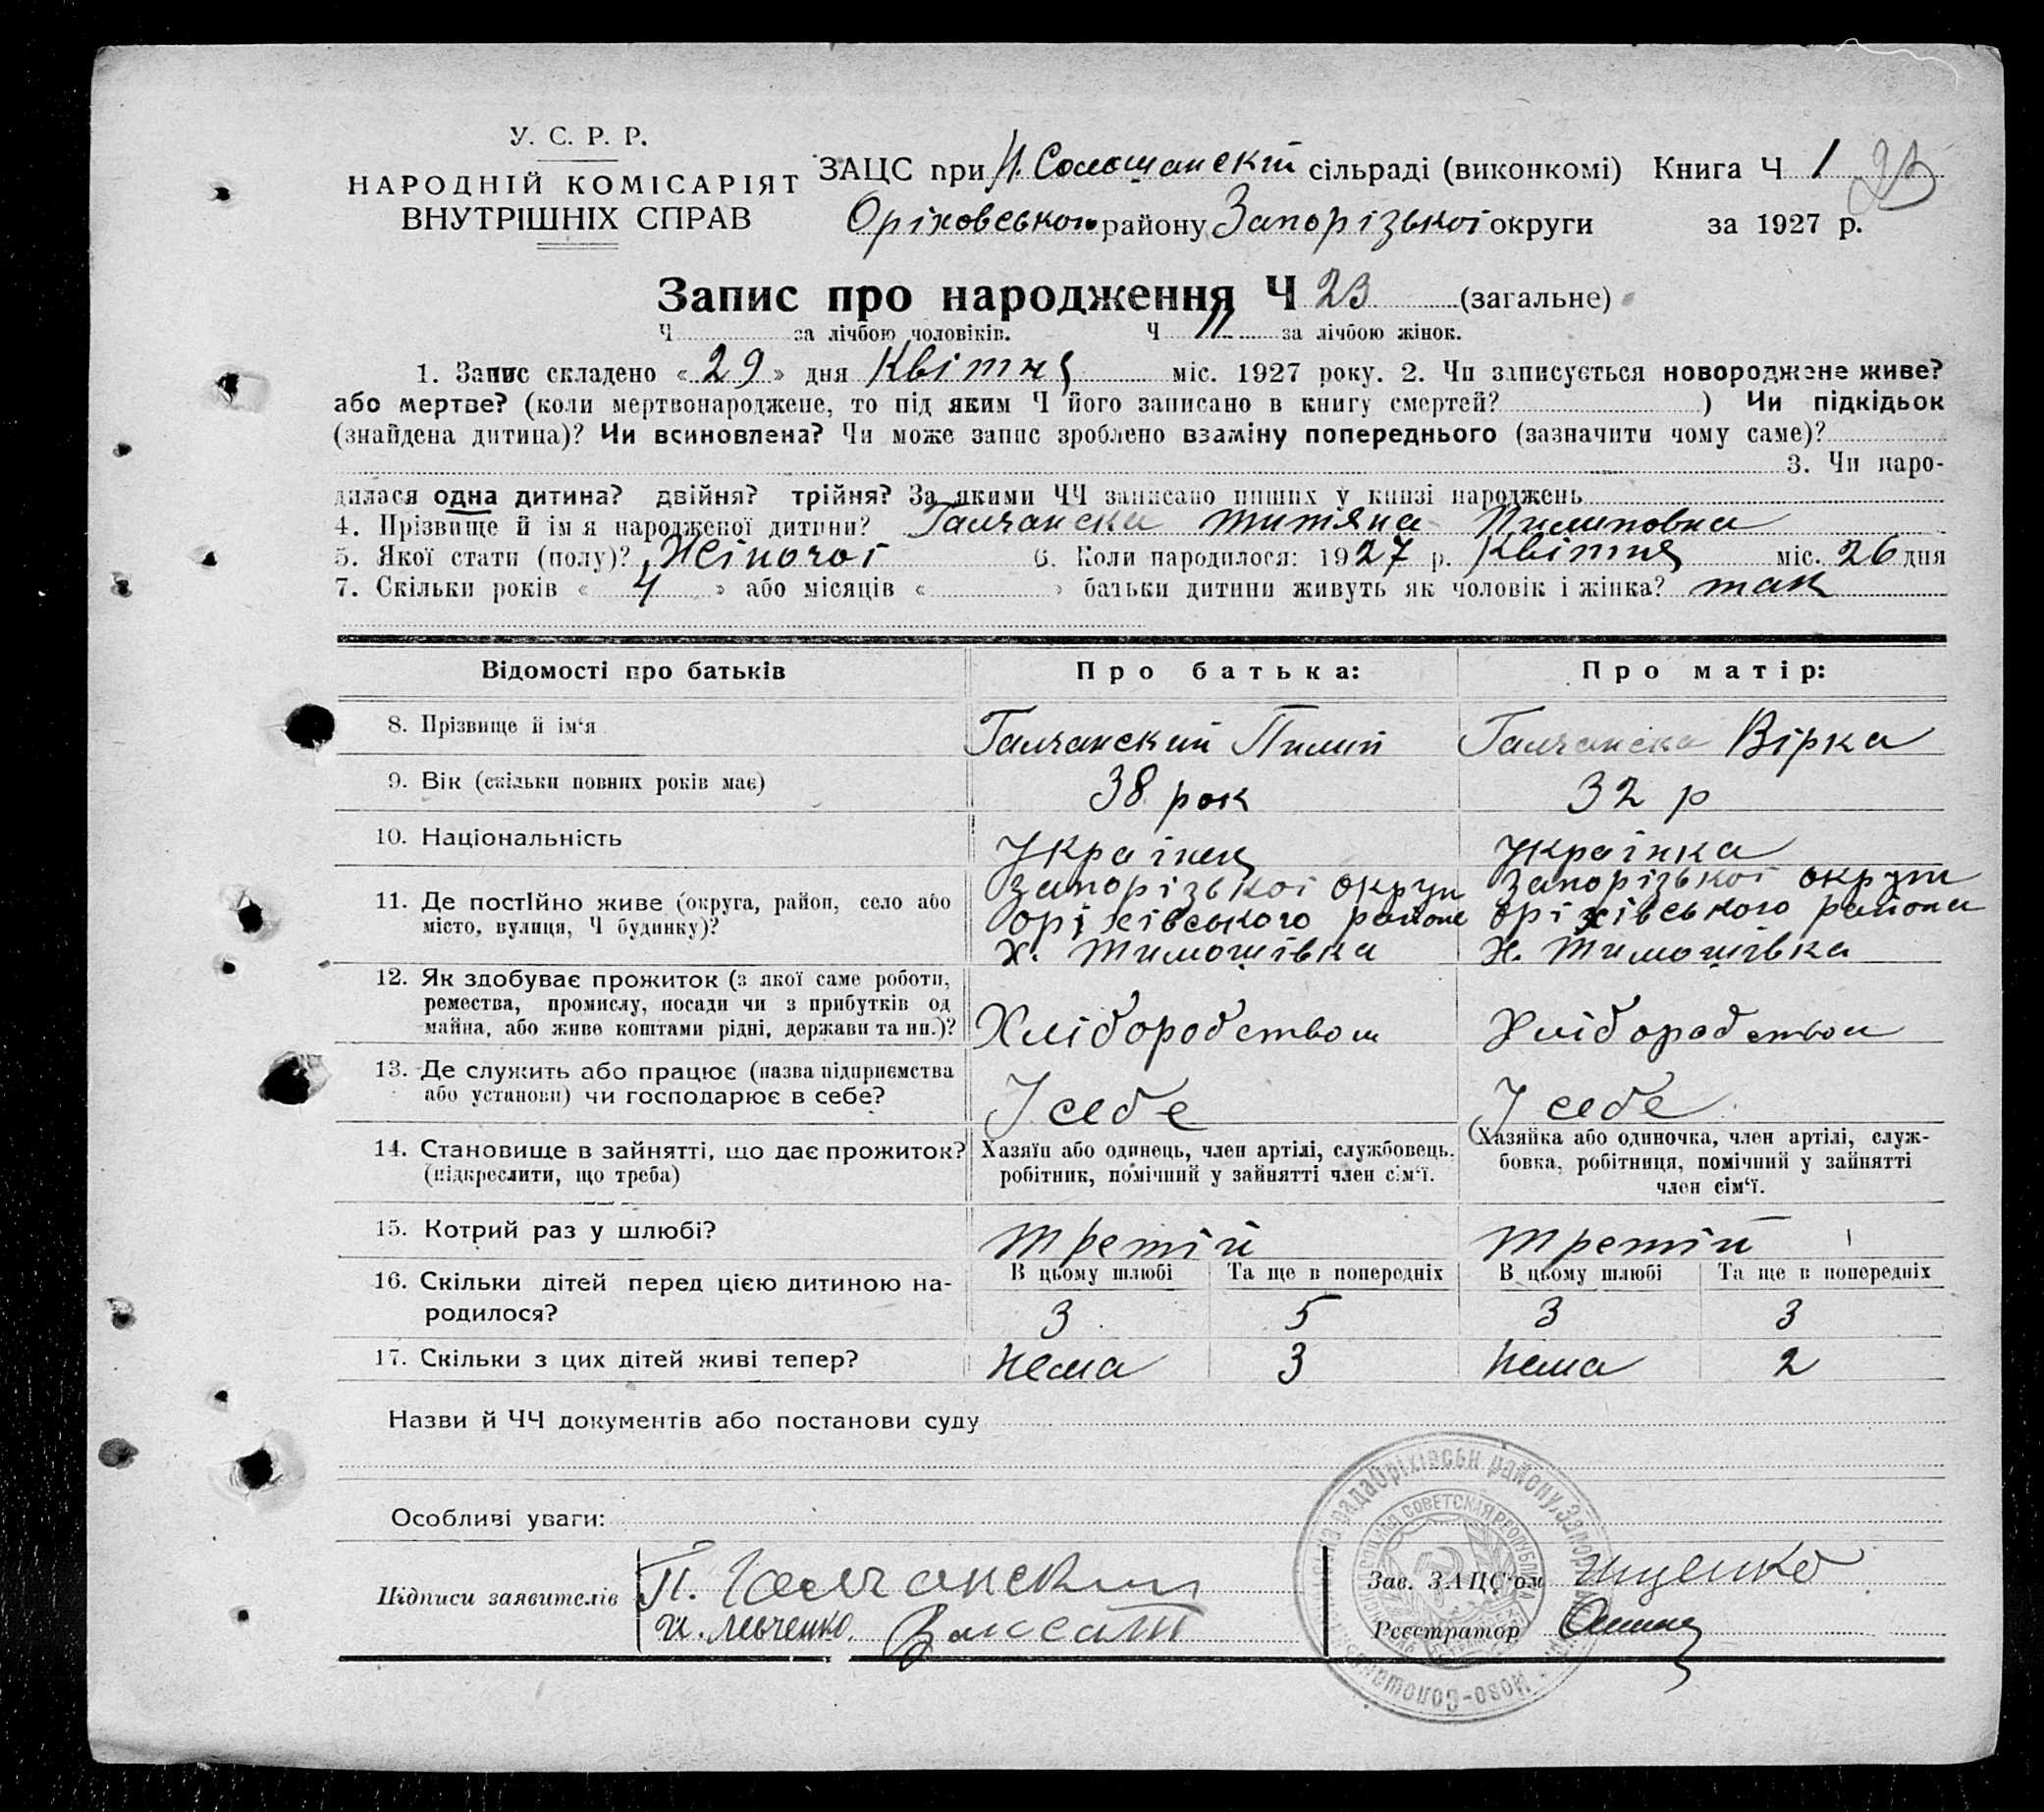 У. С. Р. Р.
НАРОДНІЙ КОМІСАРІЯТ
ВНУТРІШНІХ СПРАВ
ЗАЦС при Н. Солошанскій сільраді (виконкомі) Книга Ч 1 23
Оріховського району Запорізької округи за 1927 р.
Запис про народження Ч 23 (загальне)
Ч за лічбою чоловіків. Ч 11 за лічбою жінок.
1. Запис складено «29» дня Квітня міс. 1927 року. 2. Чи записується новороджене живе?
або мертве? (коли мертвонароджене, то під яким Ч його записано в книгу смертей? ) Чи підкідьок
(знайдена дитина)? Чи всиновлена? Чи може запис зроблено взаміну попереднього (зазначити чому саме)?
3. Чи наро-
дилася одна дитина? двійня? трійня? За якими ЧЧ записано инших у книзі народжень
4. Прізвище й ім я народженої дитини? Галчанска Титяна Пилиповна
5. Якої стати (полу)? Жіночої 6. Коли народилося: 1927 р. Квітня міс. 26 дня
7. Скільки років « 4 » або місяців « » батьки дитини живуть як чоловік і жінка? так
Відомості про батьків Про батька: Про матір:
8. Прізвище й ім‘я Галчанский Пилип Галчанска Вірка
9. Вік (скільки повних років має) 38 рок 32 р
10. Національність Українец українка
11. Де постійно живе (округа, район, село або місто, вулиця, Ч будинку)? Запорізької округи Оріхівського района Х. Тимошівка Запорізької округи Оріхівського района Х. Тимошівка
12. Як здобуває прожиток (з якої саме роботи, ремества, промислу, посади чи з прибутків од майна, або живе коштами рідні, держави та ин.)? Хліборобством Хліборобством
13. Де служить або працює (назва підприємства або установи) чи господарює в себе? У себе У себе
14. Становище в зайнятті, що дає прожиток? (підкреслити, що треба) Хазяїн або одинець, член артілі, службовець, робітник, помічний у зайнятті член сім‘ї. Хазяйка або одиночка, член артілі, служ-
бовка, робітниця, помічний у зайнятті член сім‘ї.
15. Котрий раз у шлюбі? третій третій
16. Скільки дітей перед цією дитиною на-
родилося? В цьому шлюбі Та ще в попередніх В цьому шлюбі Та ще в попередніх
3 5 3 3
17. Скільки з цих дітей живі тепер? нема 3 нема 2
Назви й ЧЧ документів або постанови суду
Особливі уваги:
Підписи заявителів П. Галчанский
И. Левченко.
Зав. ЗАЦС‘ом Іщенко
Реєстратор